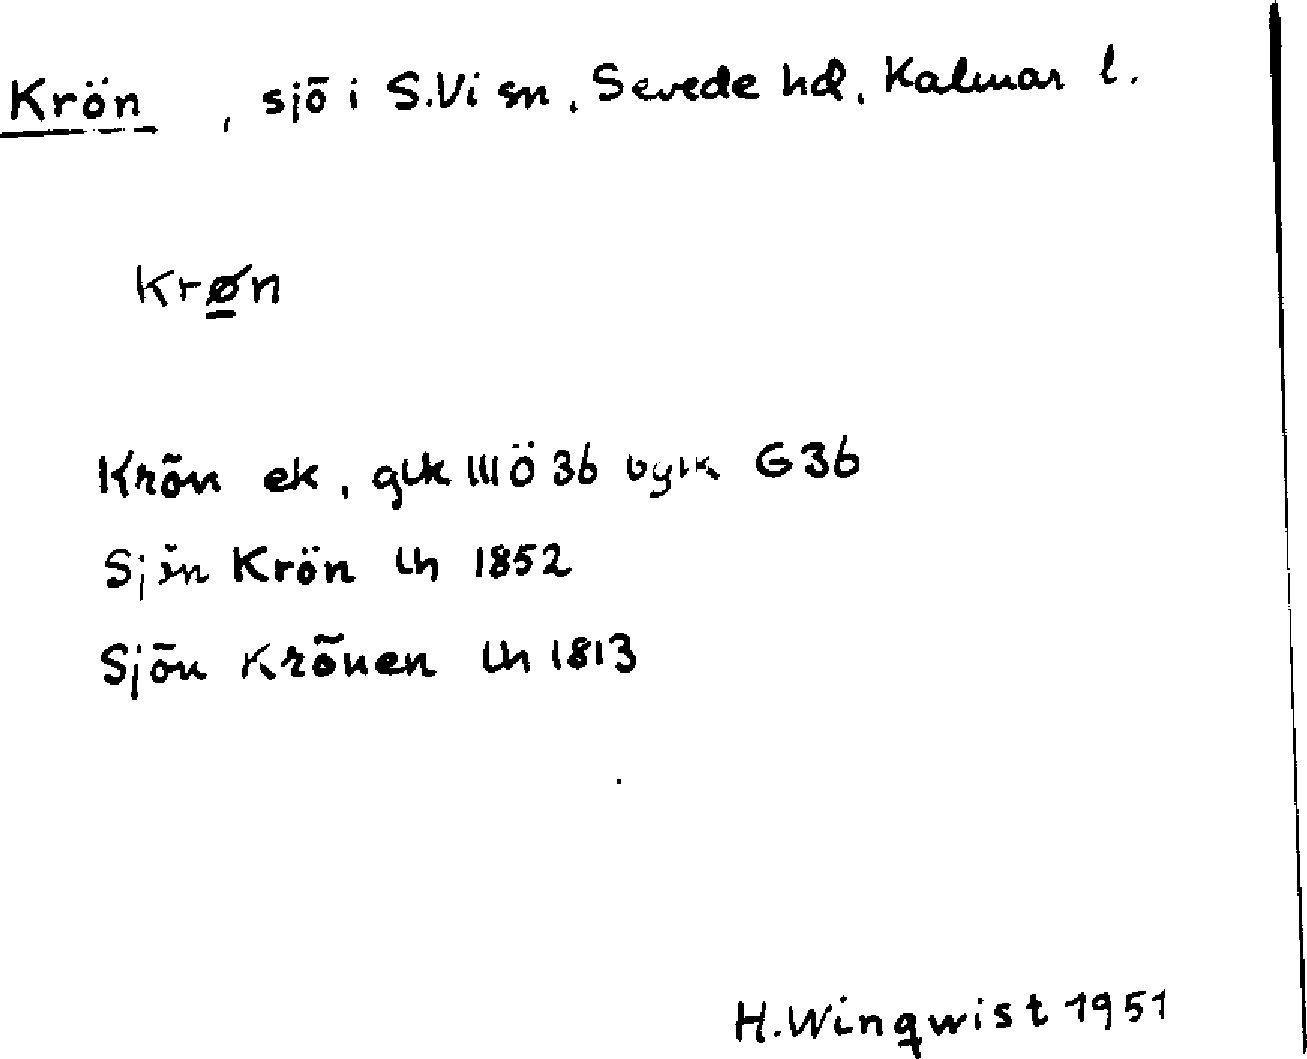 Krön, sjö i S.Vi sn, Sevede hd, Kalmar l.
Krøn
Krön ek, glk III Ö 36 bglk G36
Sjön Krön lh 1852
Sjön Krönen lh 1813
H. Winqwist 1951